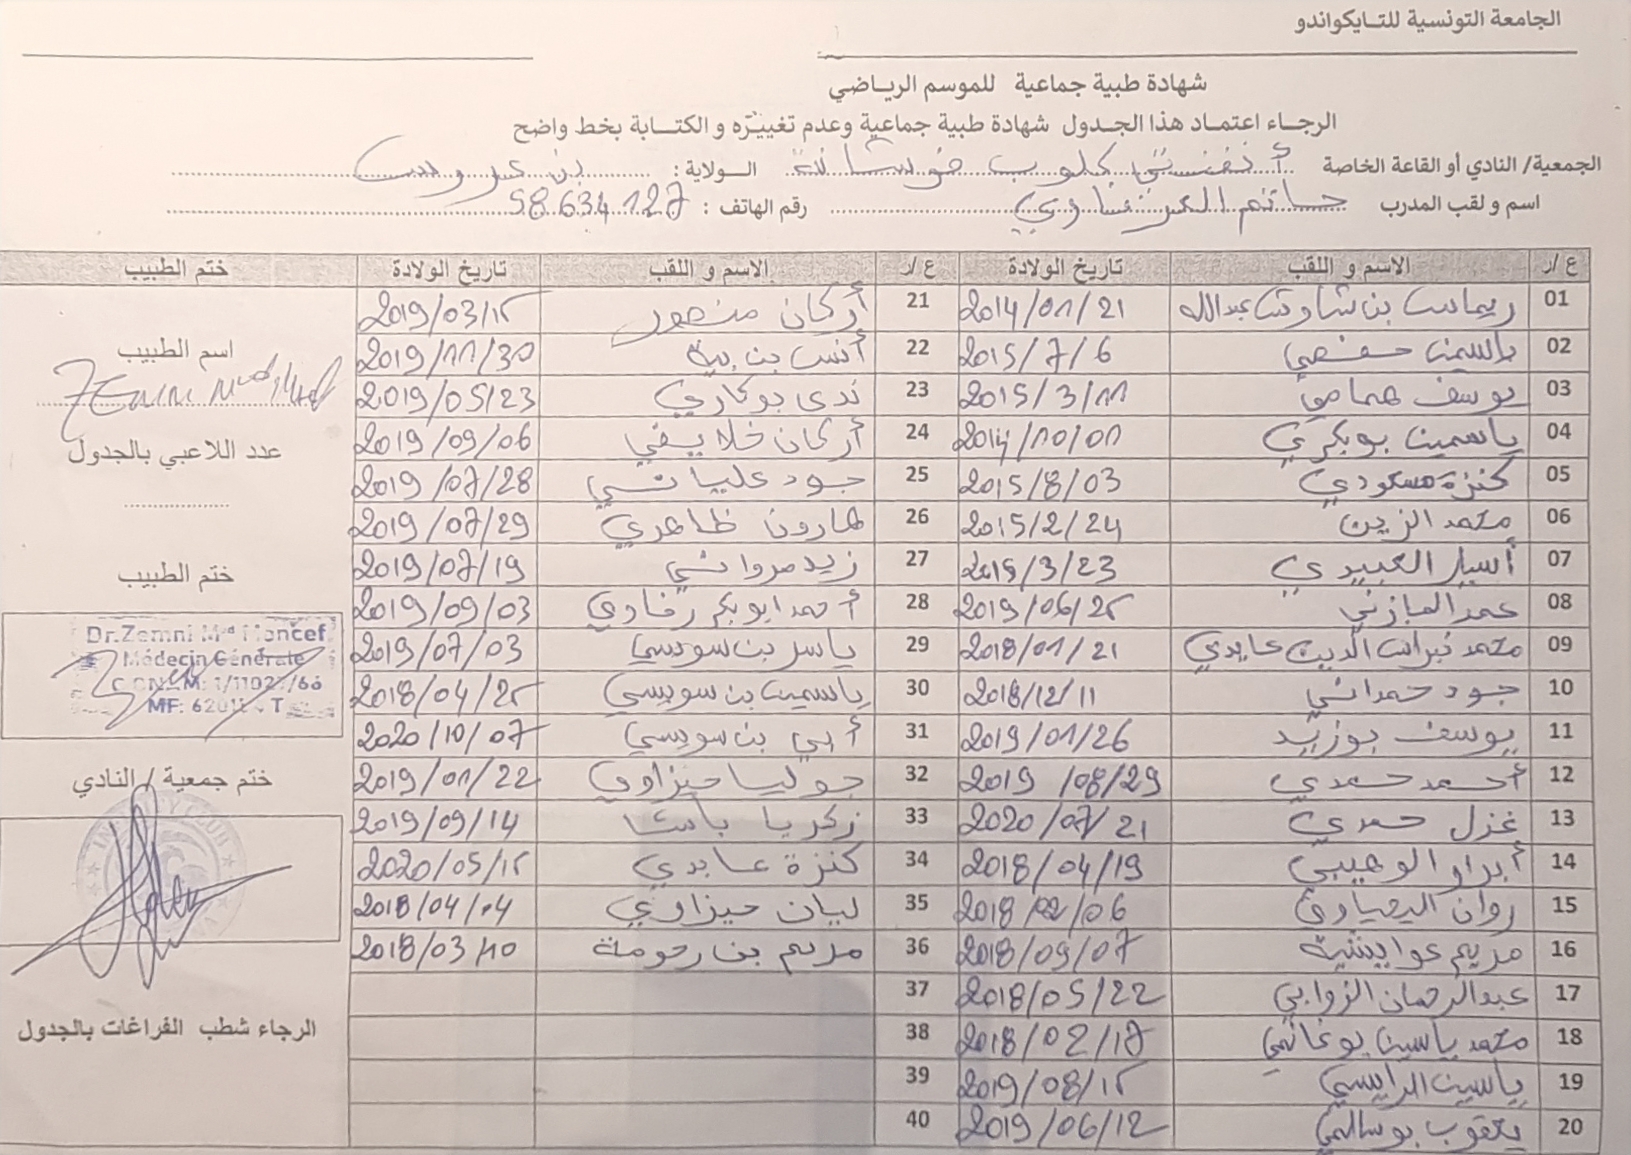 الجامعة التونسية للتايكواندو
شهادة طبية جماعية للموسم الرياضي
الرجاء اعتماد هذا الجدول شهادة طبية جماعية وعدم تغييره و الكتابة بخط واضح
الجمعية/ النادي أو القاعة الخاصة أنفنتي كلوب فوشانة الولاية : بن عروس
اسم و لقب المدرب حاتم العرفاوي رقم الهاتف : 58.634.127
ع /ر الاسم و اللقب تاريخ الولادة ع /ر الاسم و اللقب تاريخ الولادة ختم الطبيب
01 ريماس بن شاوش عبدالله 2014/01/21 21 أركان منصور 2019/03/15
02 ياسمين حفصي 2015/7/6 22 أنس بن بية 2019/11/30
03 يوسف همامي 2015/3/11 23 ندى بوكاري 2019/05/23
04 ياسمين بوبكري 2014/10/01 24 أركان خلايفي 2019/09/06
05 كنزة مسعودي 2015/8/03 25 جود علياني 2019/07/28
06 محمد الزين 2015/2/24 26 هارون ظاهري 2019/07/29
07 أسيل العبيدي 2015/3/23 27 زيد مرواني 2019/07/19
08 عمر المازني 2019/06/25 28 أحمد ابوبكر رفاوي 2019/09/03
09 محمد نبراس الدين عابدي 2018/01/21 29 ياسر بن سويسي 2019/07/03
10 جود حمداني 2018/12/11 30 ياسمين بن سويسي 2018/04/25
11 يوسف بوزيد 2019/01/26 31 أبي بن سويسي 2020/10/07
12 أحمد حمدي 2019/08/29 32 جوليا حيزاوي 2019/01/22
13 غزل حمدي 2020/07/21 33 زكريا باشا 2019/09/14
14 أبرار الوهيبي 2018/04/19 34 كنزة عابدي 2020/05/15
15 روان اليحياوي 2018/02/06 35 ليان حيزاوي 2018/04/04
16 مريم عوايشية 2018/09/07 36 مريم بن رحومة 2018/03/10
17 عبدالرحمان الزوابي 2018/05/22 37
18 محمد ياسين بوغانمي 2018/02/17 38
19 ياسين الرايسي 2019/08/15 39
20 يعقوب بوسالمي 2019/06/12 40
اسم الطبيب
عدد اللاعبي بالجدول
ختم الطبيب
Dr.Zemni Med Moncef
Médecin Générale
ختم جمعية / النادي
الرجاء شطب الفراغات بالجدول